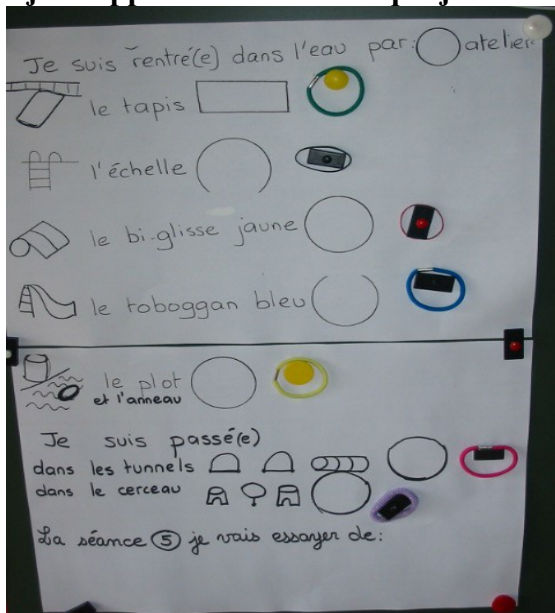 Je suis rentré(e) dans l'eau par: atelier
le tapis
l'échelle
le bi-glisse jaune
le toboggan bleu
le plot
et l'anneau
Je suis passé(e)
dans les tunnels
dans le cerceau
La séance 5 je vais essayer de: